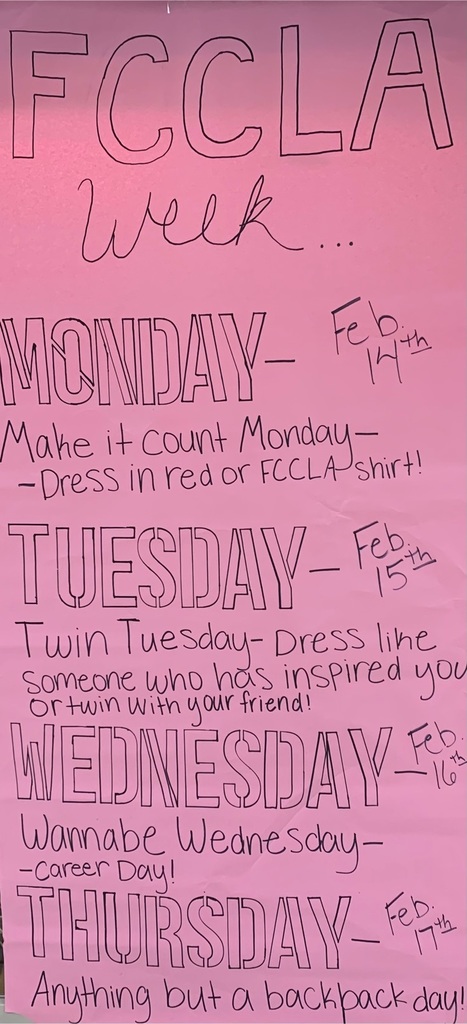 FCCLA
Week...
MONDAY- Feb. 14th
Make it count Monday-
-Dress in red or FCCLA shirt!
TUESDAY- Feb. 15th
Twin Tuesday- Dress like
someone who has inspired you
or twin with your friend!
WEDNESDAY- Feb. 16th
Wannabe Wednesday-
-Career Day!
THURSDAY- Feb. 17th
Anything but a backpack day!